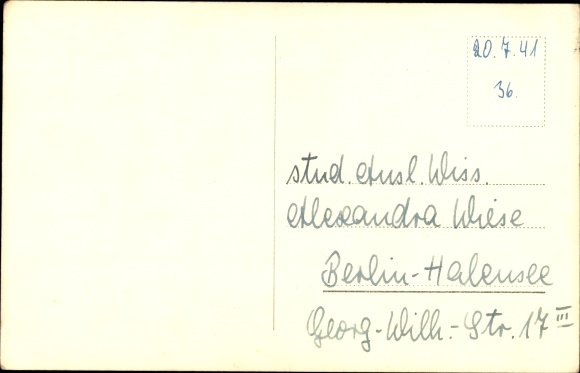 20.7.41
36.
stud. Ausl. Wiss.
Alexandra Wiese
Berlin-Halensee
Georg-Wilh.-Str. 17 III